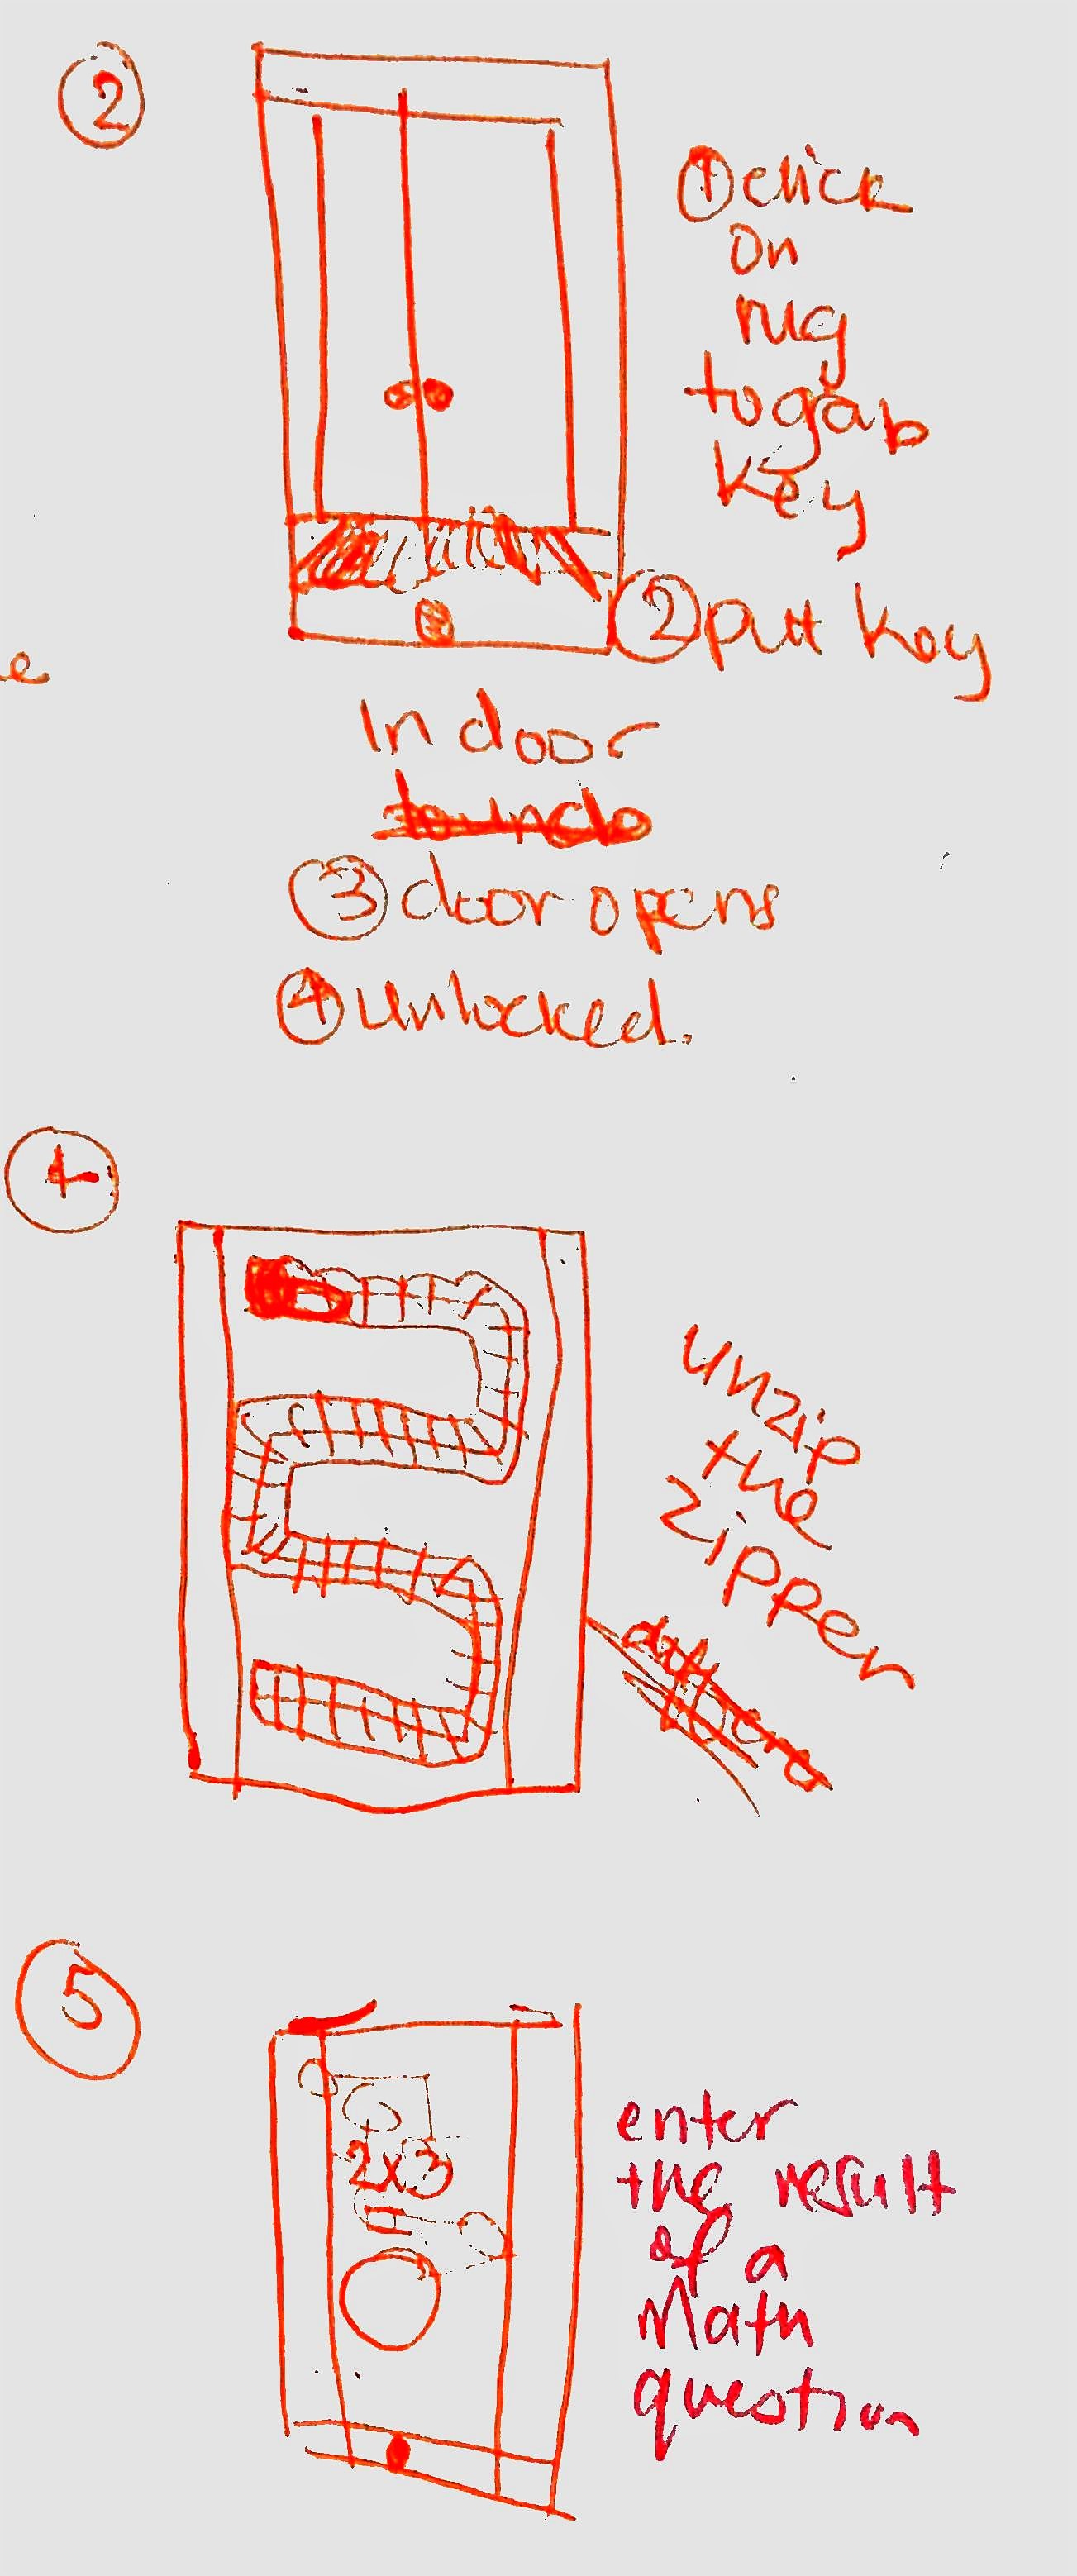 2
① click
on
rug
to gab
key
② putt key
in door
③ door opens
④ unlocked.
4
unzip
the
zipper
5
2x3
=
enter
the result
of a
Math
question